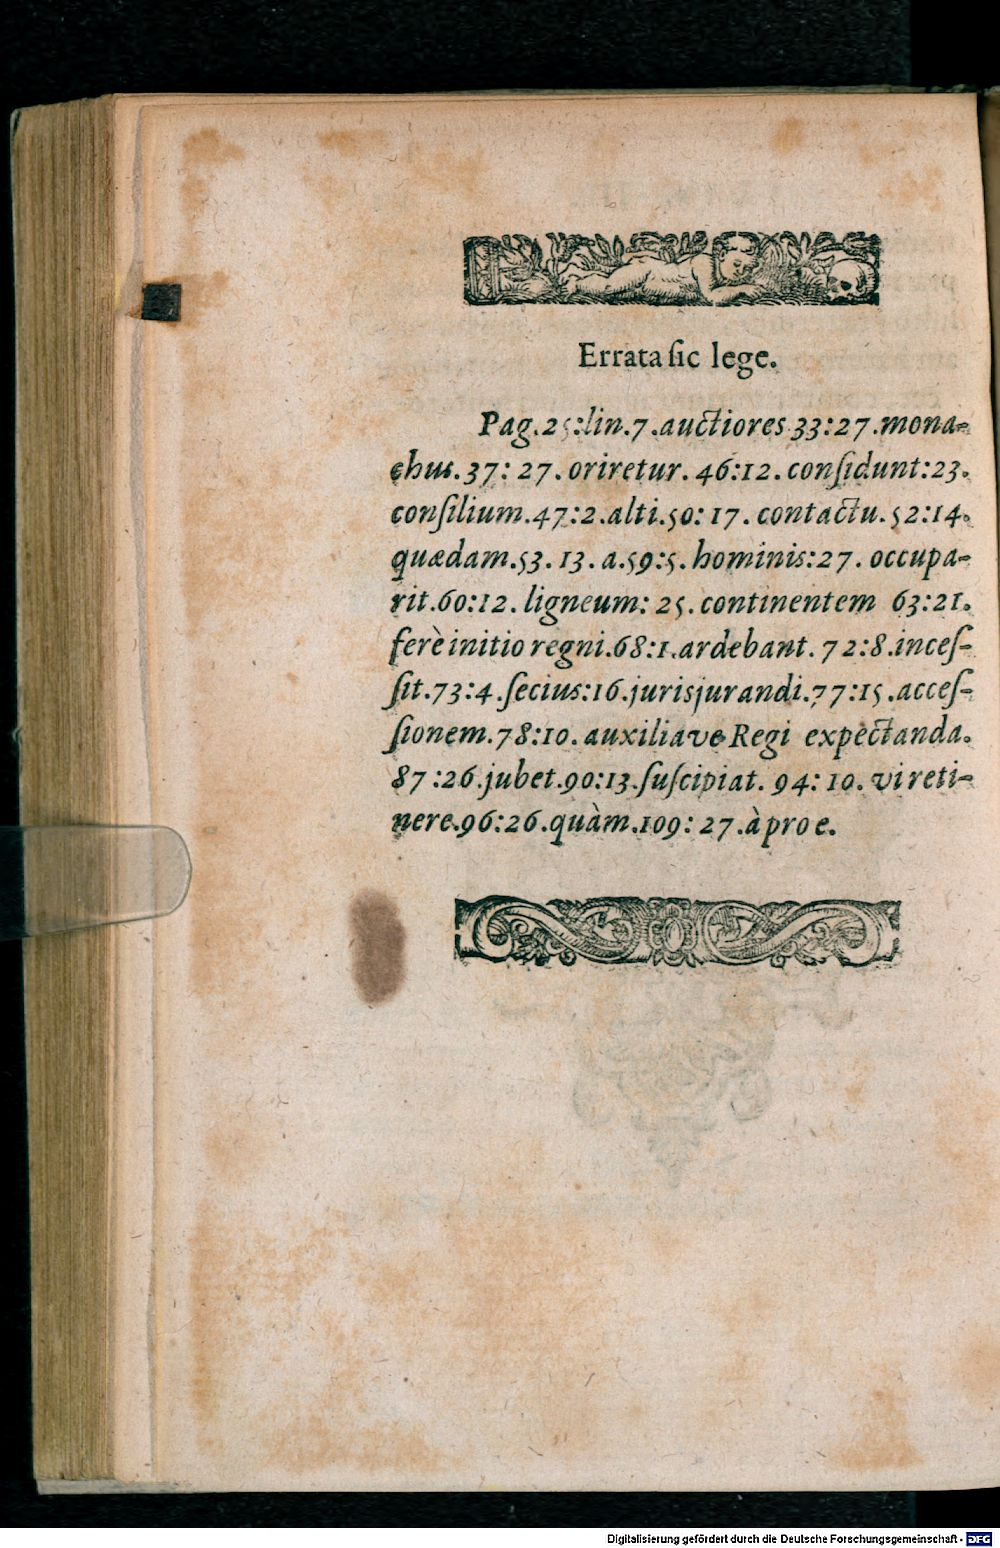 Errata ſic lege.
Pag.25:lin.7.auctiores 33:27.mona-
chus.37: 27. oriretur. 46:12. conſidunt:23.
conſilium.47:2.alti.50: 17. contactu. 52:14.
quædam.53. 13. a.59:5. hominis:27. occupa-
rit.60:12. ligneum: 25. continentem 63:21.
ferè initio regni.68:1.ardebant. 72:8.inceſ-
ſit.73:4.ſecius:16.jurisjurandi.77:15.acceſ-
ſionem.78:10. auxiliave Regi expectanda.
87:26.jubet.90:13.ſuſcipiat. 94: 10. vi reti-
nere.96:26.quàm.109: 27.à pro e.
Digitalisierung gefördert durch die Deutsche Forschungsgemeinschaft - DFG